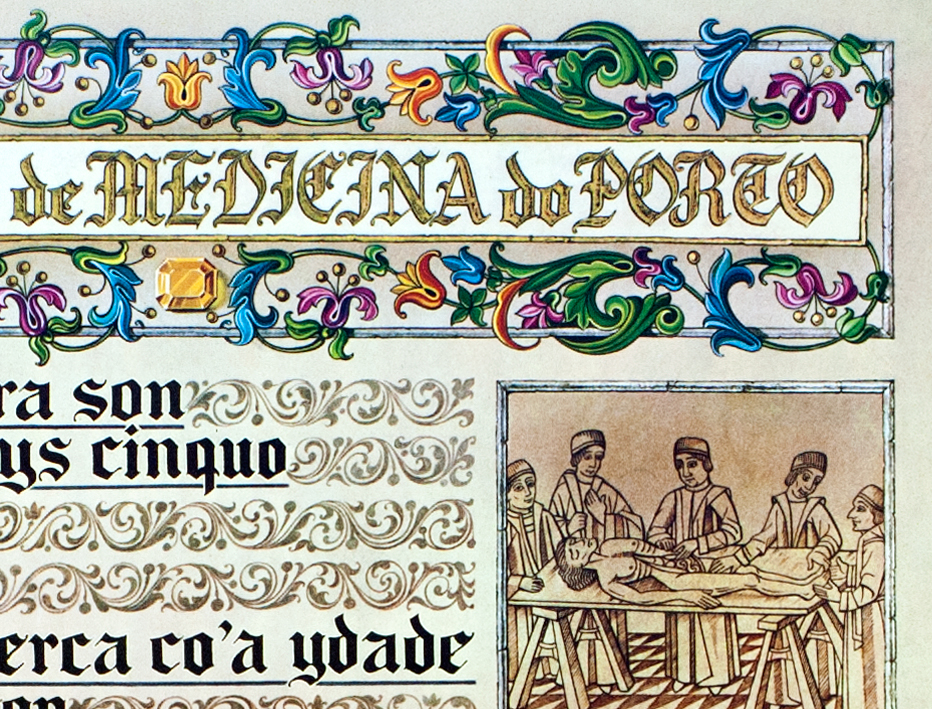 de MEDICINA do PORTO
ra son
ys cinquo
erca co'a ydade